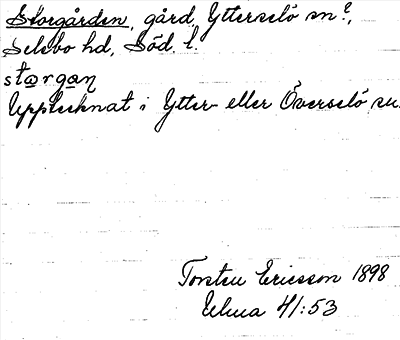 Storgården, gård, Ytterselö sn?,
Selebo hd, Söd. l.
storgan
Upptecknat i Ytter- eller Överselö sn.
Torsten Ericsson 1898
Ulma 41:53